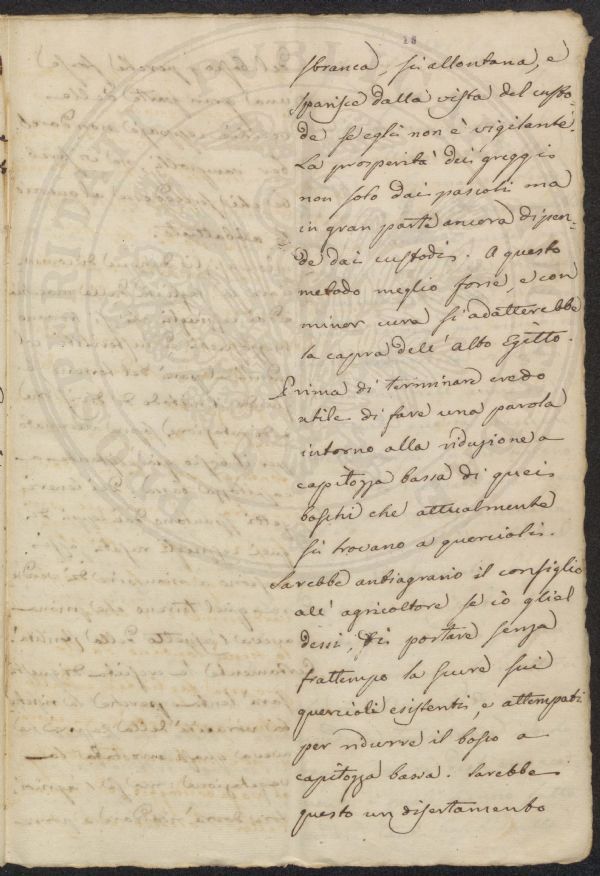 18
sbranca, si allontana, e
sparisce dalla vista del custo-
de se egli non è vigilante.
La prosperità dei greggi
non solo dai pascoli ma
in gran parte ancora dipen-
de dai custodi. A questo
metodo meglio forse, e con
minor cura si adatterebbe
la capra dell' alto Egitto.
Prima di terminare credo
utile di fare una parola
intorno alla riduzione a
capitozza bassa di quei
boschi che attualmente
si trovano a quercioli.
Sarebbe antiagrario il consiglio
all' agricoltore se io gliel
dessi, di portare senza
frattempo la scure sui
quercioli esistenti, e attempati
per ridurre il bosco a
capitozza bassa. Sarebbe
questo un disertamento